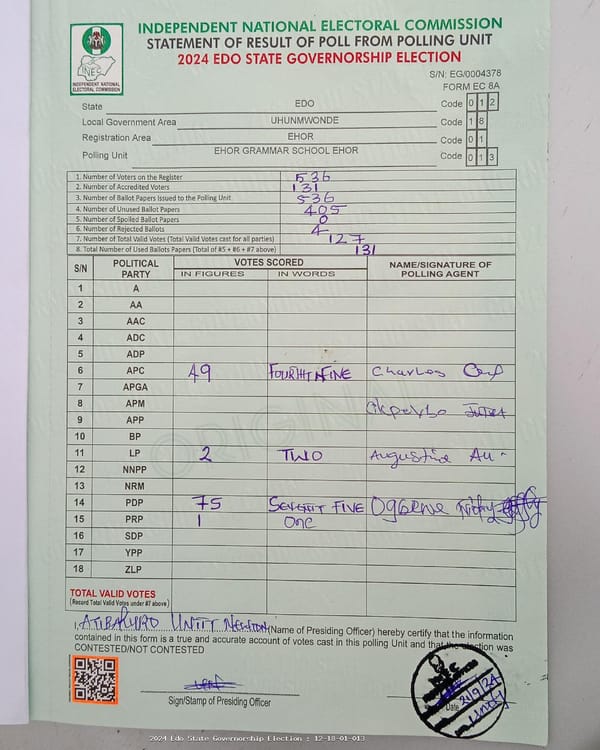 INDEPENDENT NATIONAL ELECTORAL COMMISSION
STATEMENT OF RESULT OF POLL FROM POLLING UNIT
2024 EDO STATE GOVERNORSHIP ELECTION
INDEPENDENT NATIONAL ELECTORAL COMMISSION
S/N: EG/0004378
FORM EC 8A
State EDO Code 0 1 2
Local Government Area UHUNMWONDE Code 1 8
Registration Area EHOR Code 0 1
Polling Unit EHOR GRAMMAR SCHOOL EHOR Code 0 1 3
1. Number of Voters on the Register 536
2. Number of Accredited Voters 131
3. Number of Ballot Papers Issued to the Polling Unit 536
4. Number of Unused Ballot Papers 405
5. Number of Spoiled Ballot Papers 0
6. Number of Rejected Ballots 4
7. Number of Total Valid Votes (Total Valid Votes cast for all parties) 127
8. Total Number of Used Ballots Papers (Total of #5 + #6 + #7 above) 131
S/N POLITICAL PARTY VOTES SCORED NAME/SIGNATURE OF POLLING AGENT
IN FIGURES IN WORDS
1 A
2 AA
3 AAC
4 ADC
5 ADP
6 APC 49 Charles
7 APGA
8 APM
9 APP
10 BP
11 LP 2 TWO Augustine Au
12 NNPP
13 NRM
14 PDP 75 SEVENTY FIVE
15 PRP 1 ONE
16 SDP
17 YPP
18 ZLP
TOTAL VALID VOTES
(Record Total Valid Votes under #7 above)
I, (Name of Presiding Officer) hereby certify that the information
contained in this form is a true and accurate account of votes cast in this polling Unit and that the election was
CONTESTED/NOT CONTESTED
Sign/Stamp of Presiding Officer
Date 21/9/24
2024 Edo State Governorship Election : 12-18-01-013